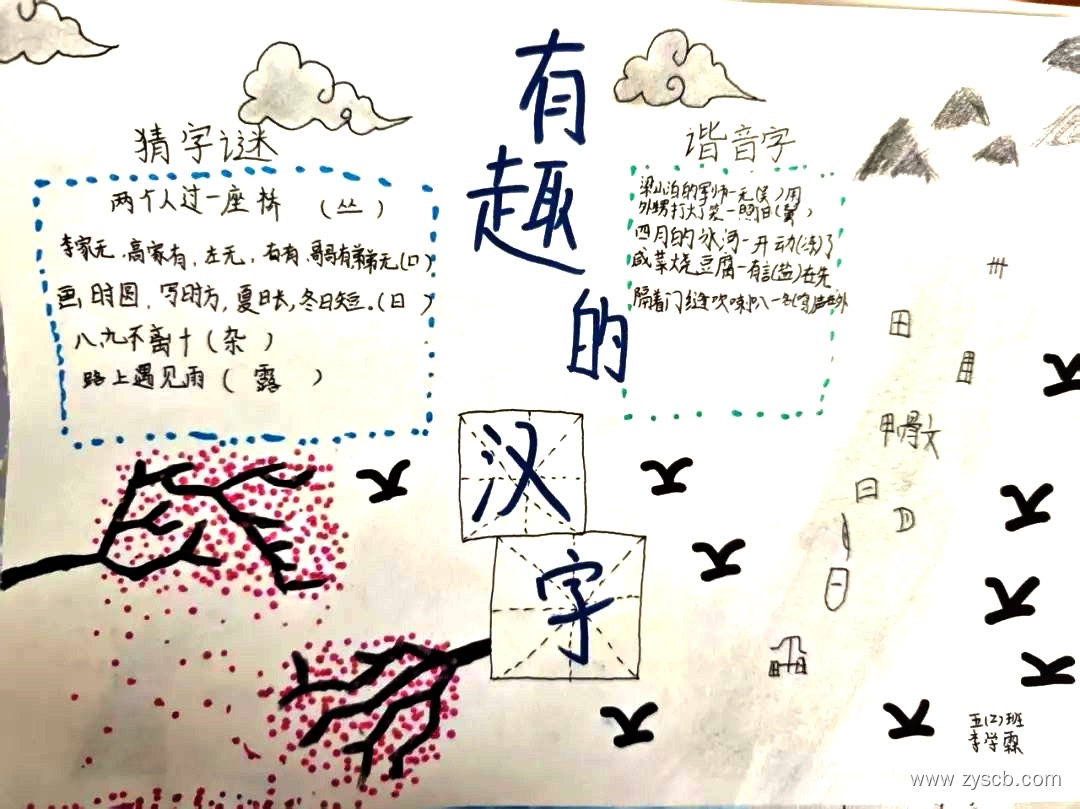 有趣的汉字
猜字谜
两个人过一座桥 (丛)
李家无,高家有,左无,右有,哥哥有弟弟无(口)
画时圆,写时方,夏日长,冬日短。(日)
八九不离十(杂)
路上遇见雨(露)
谐音字
梁山泊的军师一无(吴)用
外甥打大了笼一照旧(舅)
四月的冰河一开动(冻)了
咸菜烧豆腐一有言(盐)在先
隔着门缝吹喇叭一名(鸣)声在外
田
甲骨文
日
五(2)班
李学霖
www.zyscb.com